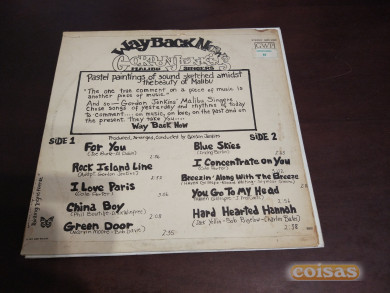 Way Back Now
GORDON JENKINS
MALIBU SINGERS
GWP
Pastel paintings of sound sketched amidst
the beauty of Malibu
"The one true comment on a piece of music is
another piece of music."
And so — Gordon Jenkins' Malibu Singers
Chose songs of yesterday and rhythms of today
to comment... on music, on love, on the past and on
the present. They take you...
Way Back Now
Produced, Arranged, Conducted by Gordon Jenkins
SIDE 1
For You
2:06
Rock Island Line
(Adapt. Gordon Jenkins)
I Love Paris
(Cole Porter)
China Boy
Green Door
(Marvin Moore - Bob Davie)
2:35
SIDE 2
Blue Skies
(Irving Berlin)
I Concentrate on You
(Cole Porter)
Breezin' Along With The Breeze
You Go To My Head
Hard Hearted Hannah
(Jack Yellen - Bob Bigelow - Charles Bates)
2:38
coisas